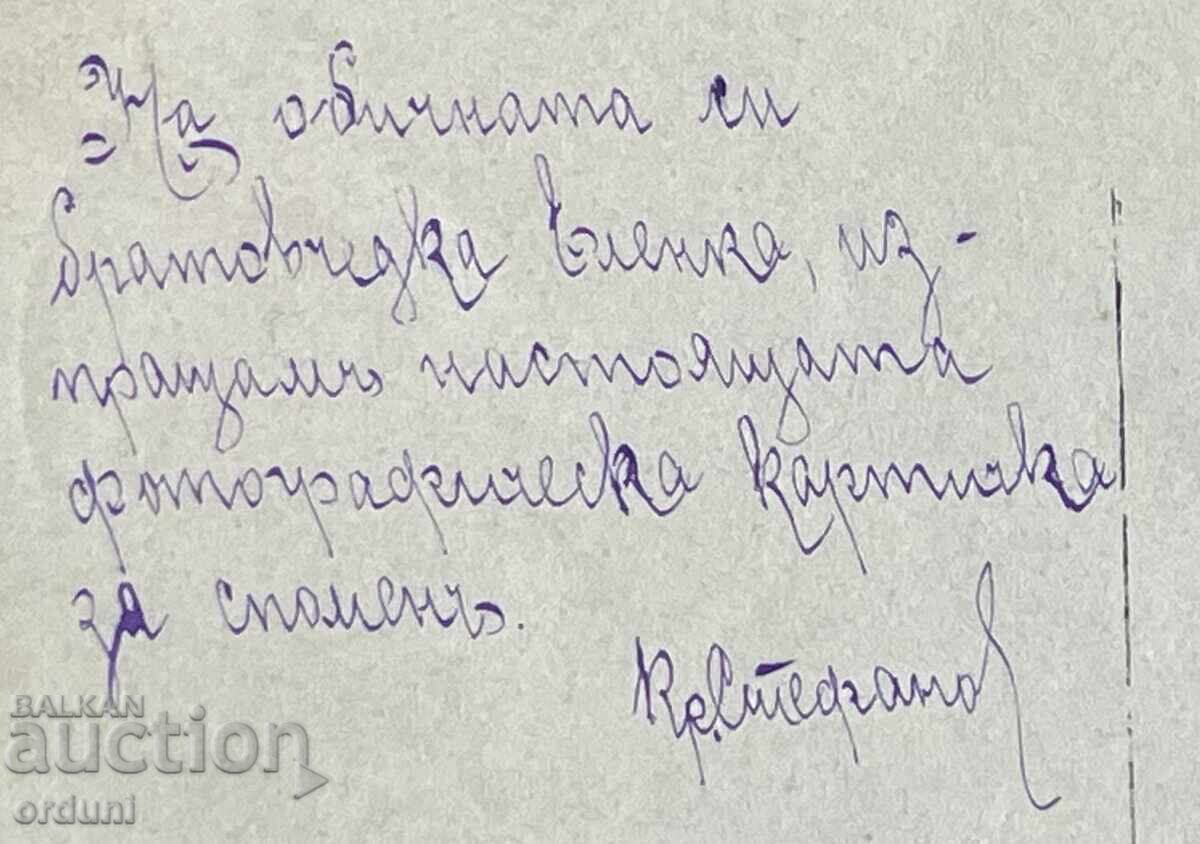 На обичната си
братовчедка Еленка, из-
пращамъ настоящата
фотографическа картичка
за споменъ.
Кр. Стефанов
BALKAN
auction
orduni